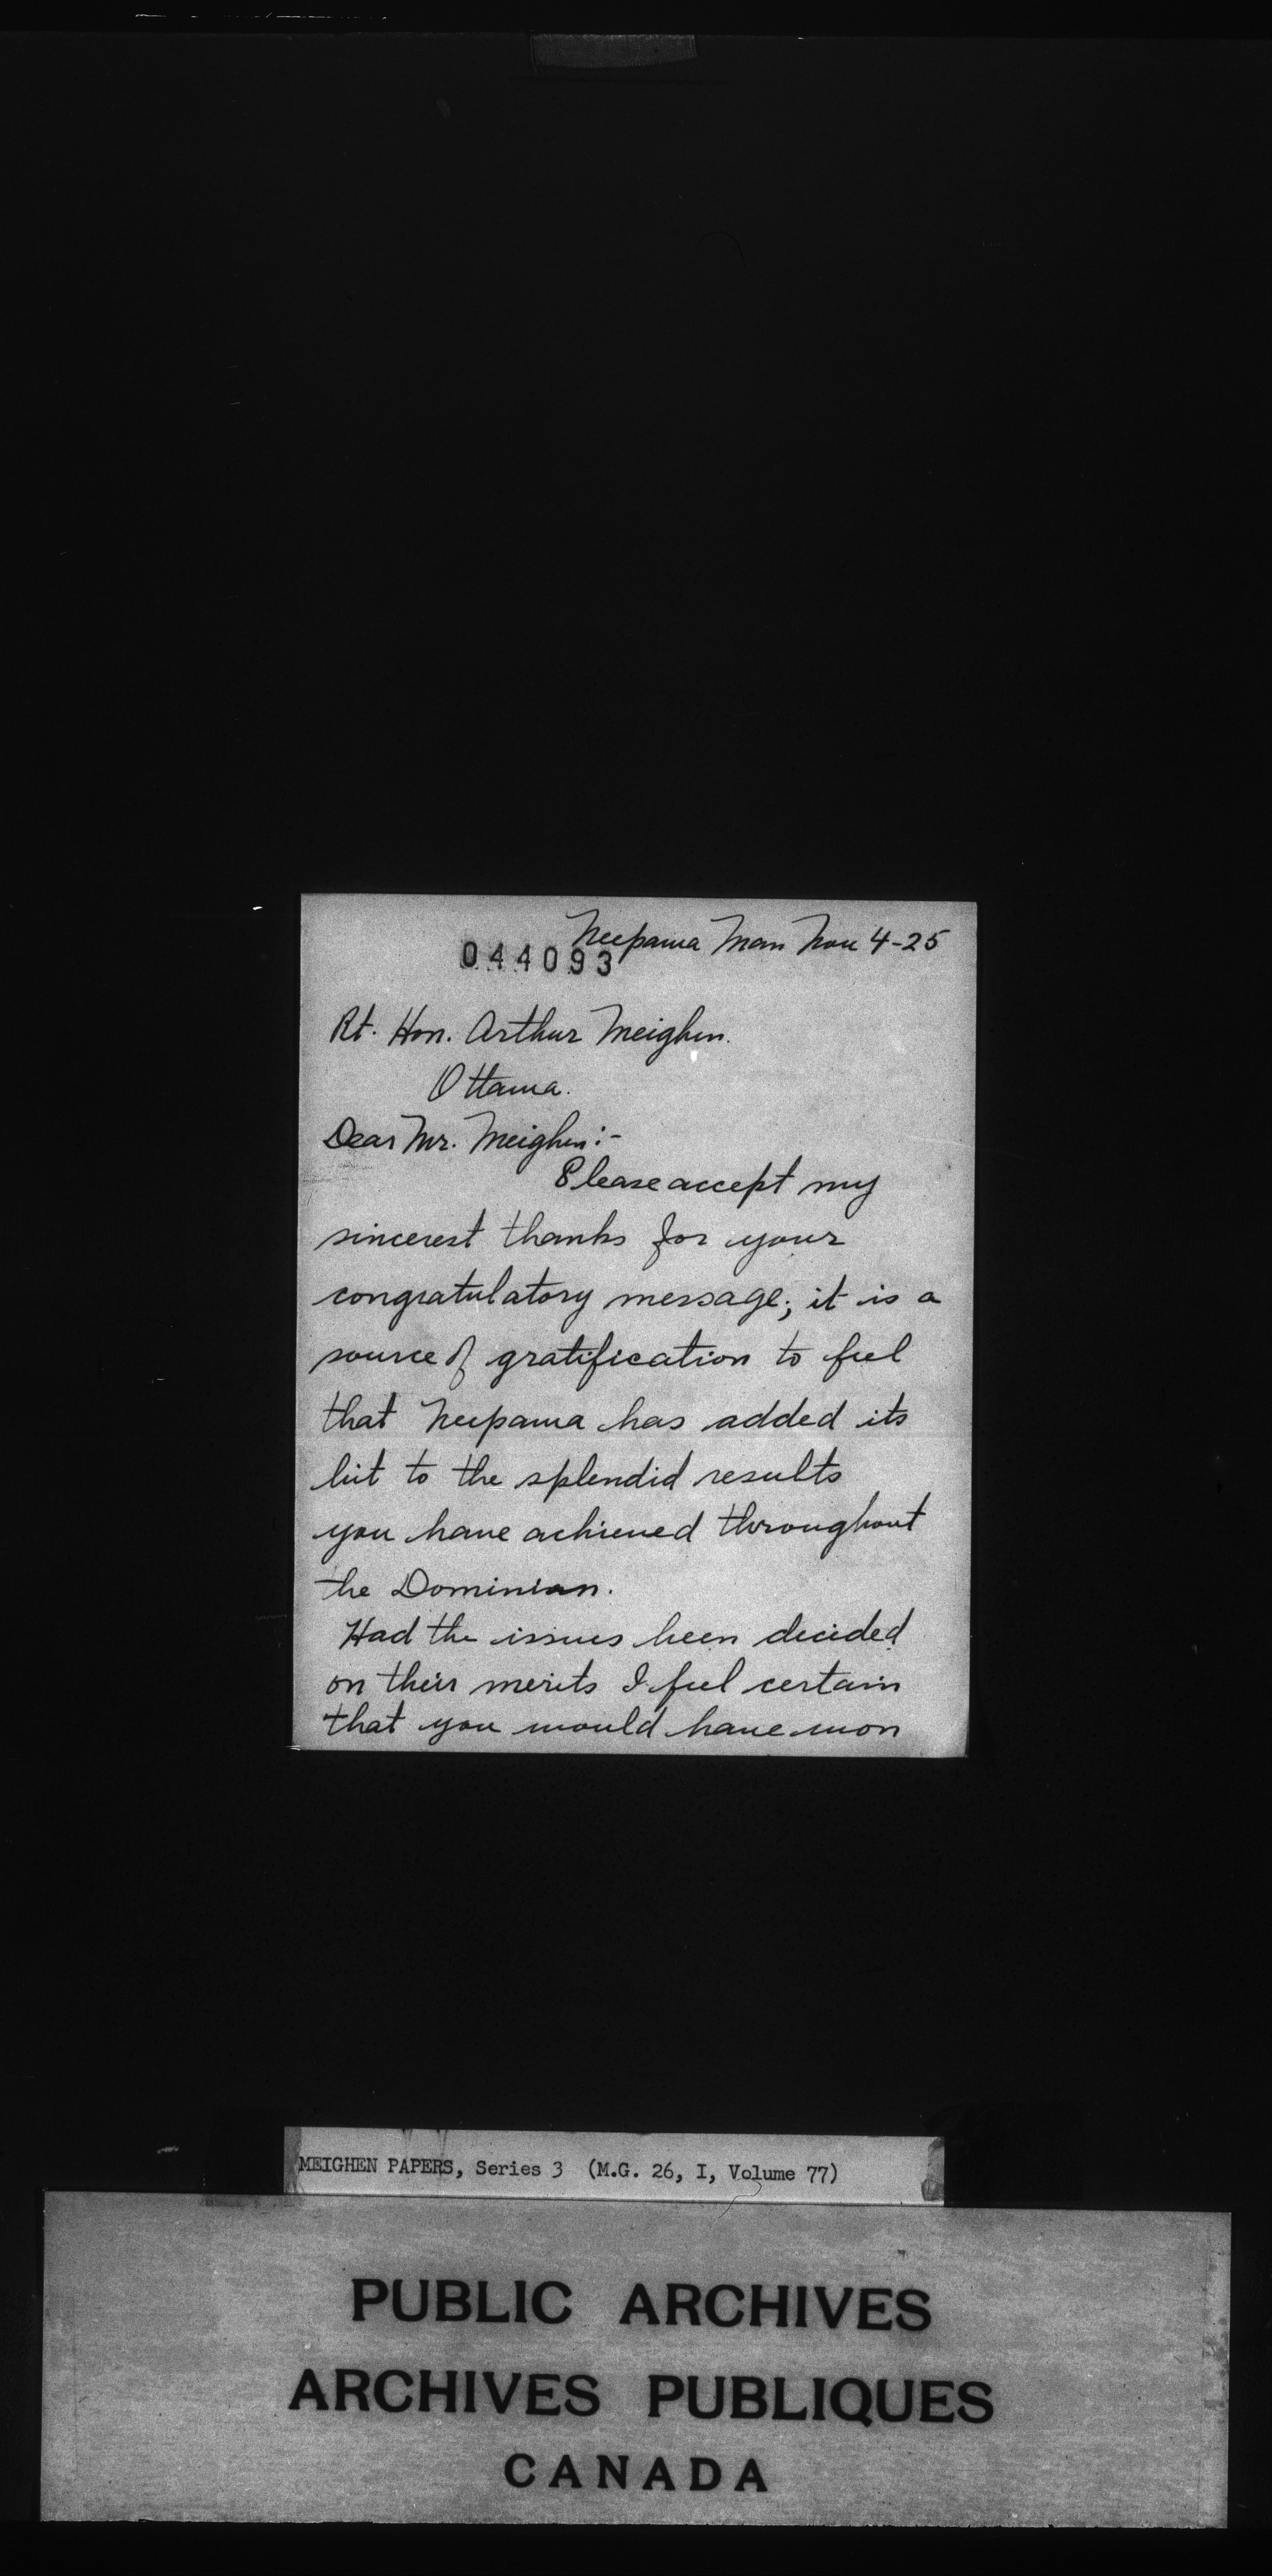 Neepawa Man Nov 4-25
044093
Rt. Hon. Arthur Meighen.
Ottawa.
Dear Mr. Meighen:-
Please accept my
sincerest thanks for your
congratulatory message; it is a
source of gratification to feel
that Neepawa has added its
bit to the splendid results
you have achieved throughout
the Dominion.
Had the issues been decided
on their merits I feel certain
that you would have won
MEIGHEN PAPERS, Series 3 (M.G. 26, I, Volume 77)
PUBLIC ARCHIVES
ARCHIVES PUBLIQUES
CANADA